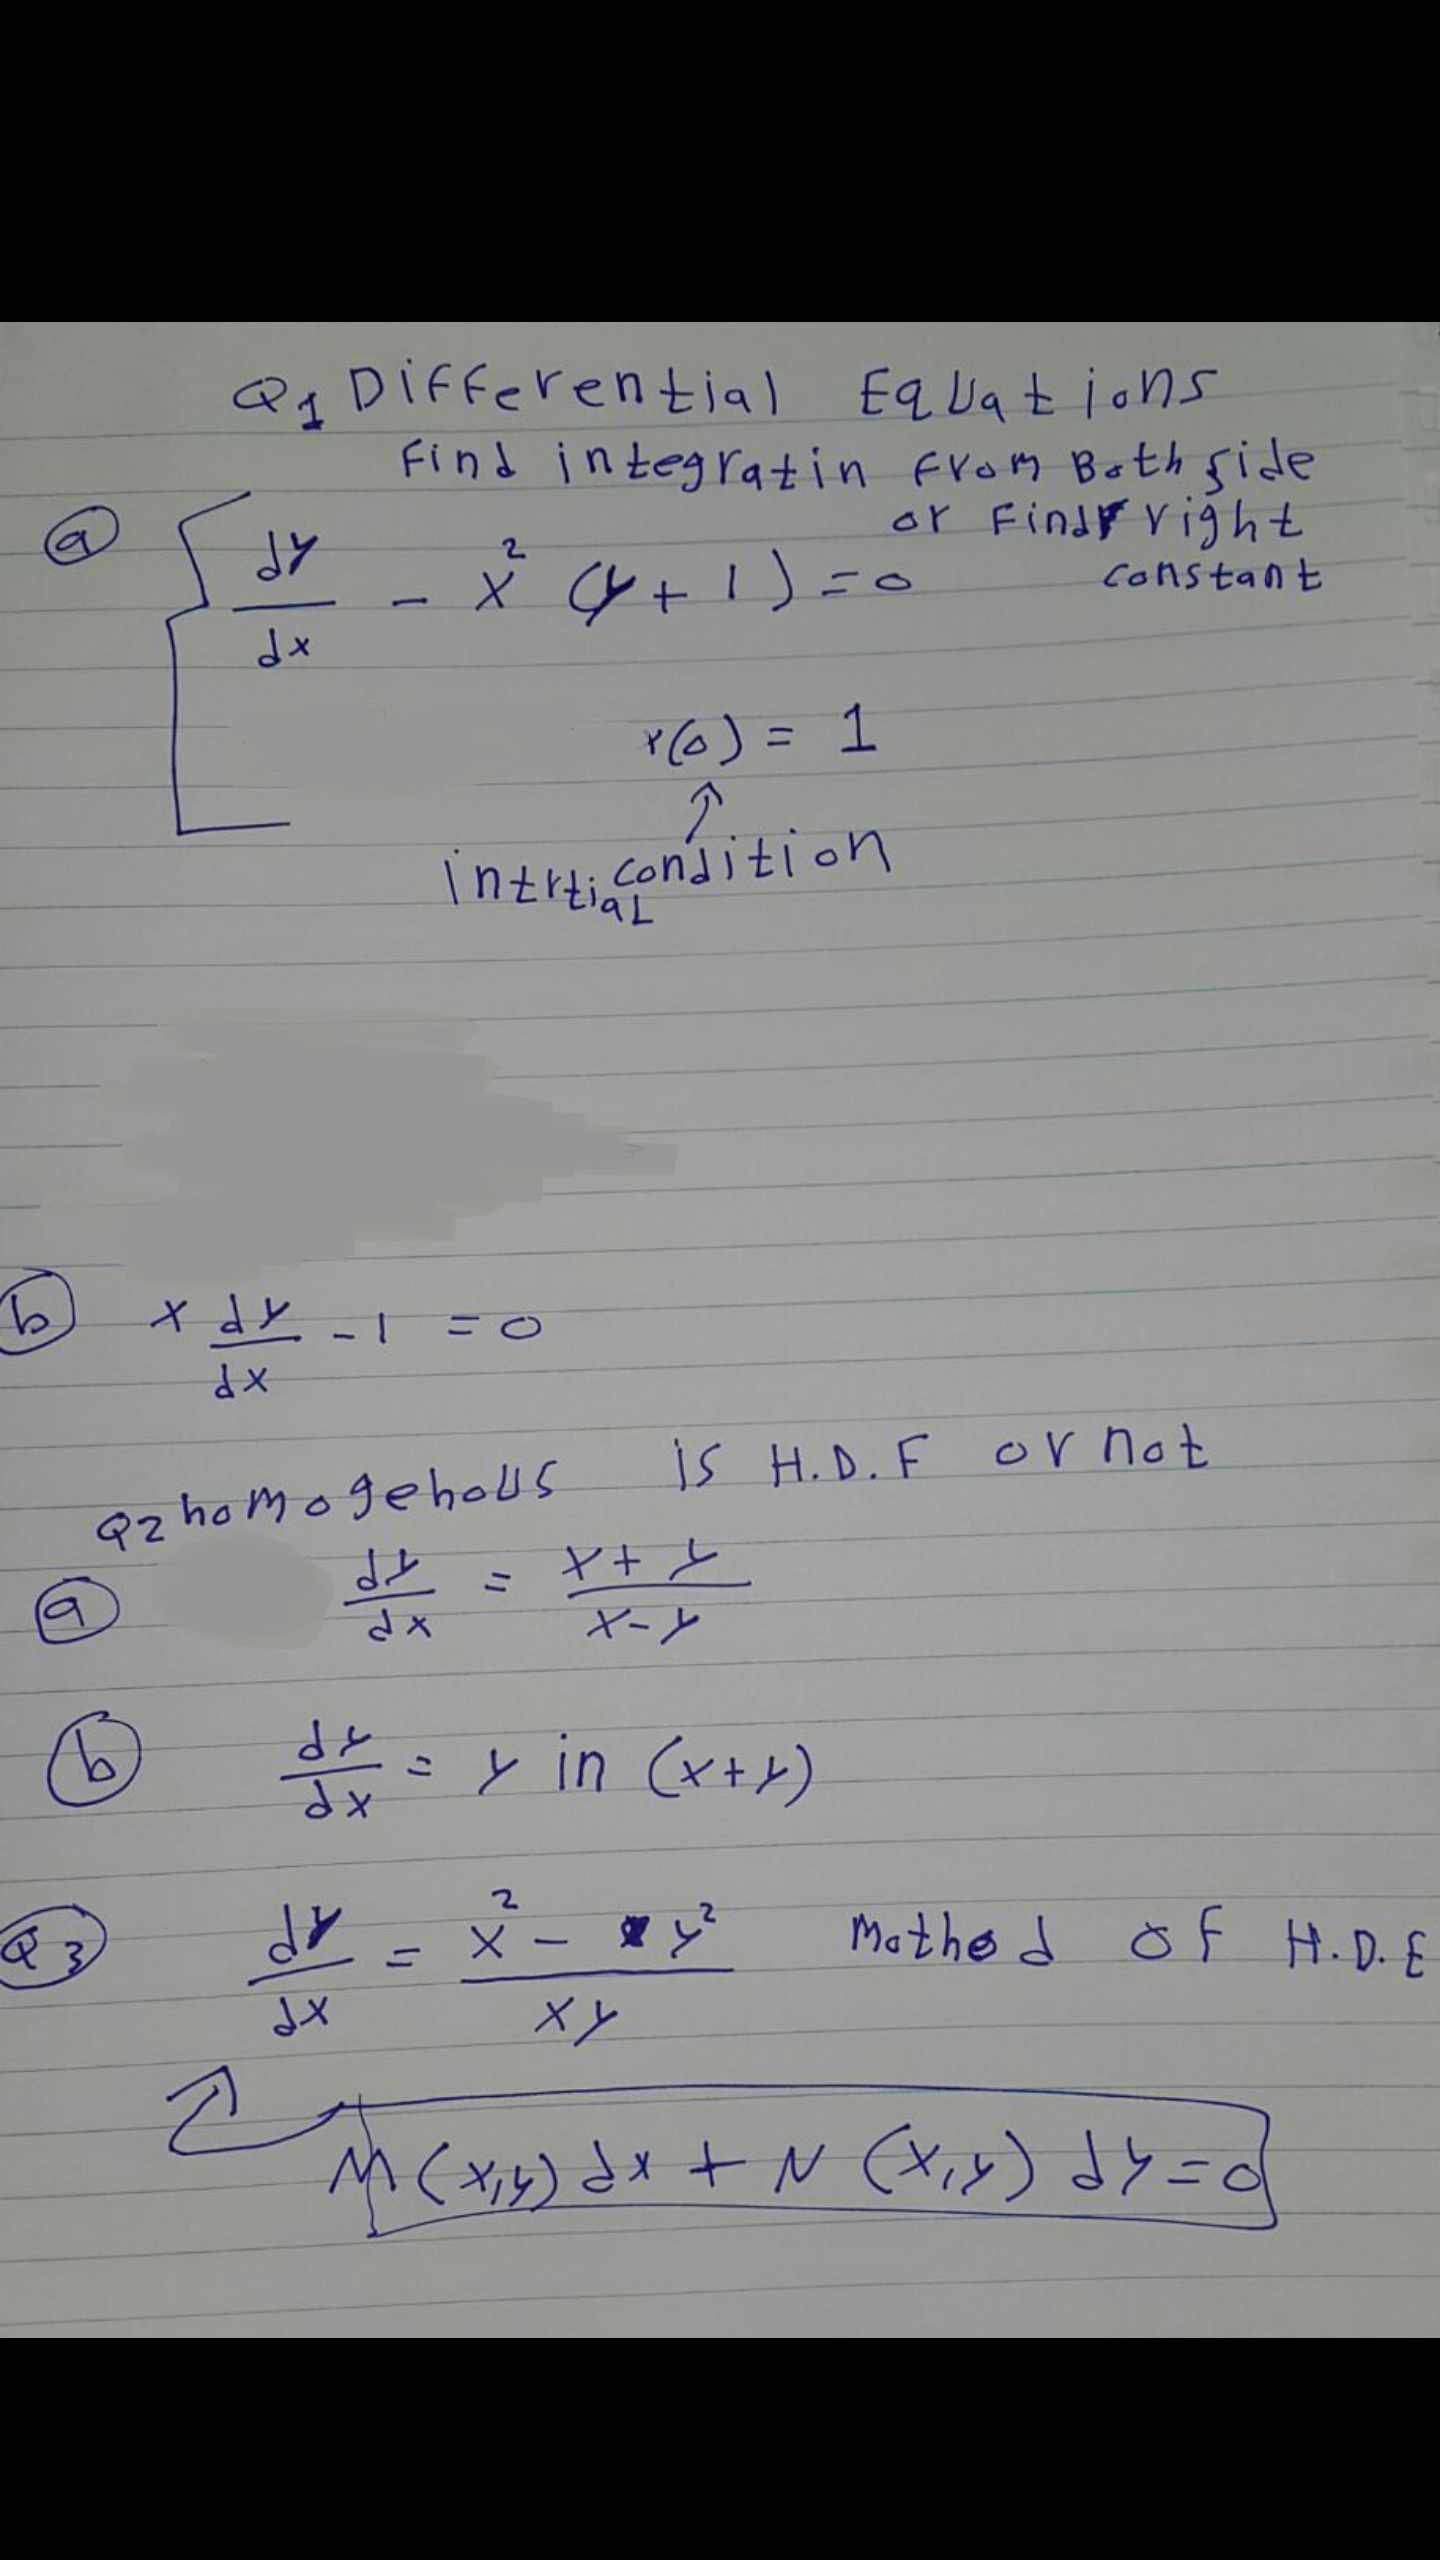 Q1 Differential Equations
Find integratin From Both side
or Find right
constant
a dy/dx - x² (y + 1) = 0
y(0) = 1
↑
intrtial condition
b x dy/dx - 1 = 0
Q2 homogehous is H.D.F or not
a dy/dx = x+y/x-y
b dy/dx = y in (x+y)
Q3 dy/dx = x² - y²/xy Mothod of H.D.E
M(x,y) dx + N (x,y) dy = 0